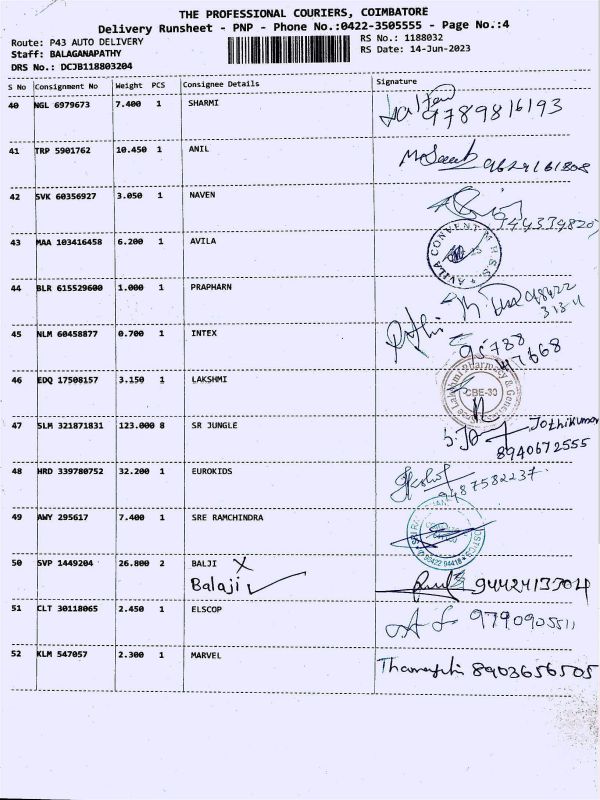 THE PROFESSIONAL COURIERS, COIMBATORE
Delivery Runsheet - PNP - Phone No.:0422-3505555 - Page No.:4
Route: P43 AUTO DELIVERY
Staff: BALAGANAPATHY
DRS No.: DCJB118803204
RS No.: 1188032
RS Date: 14-Jun-2023
S No Consignment No Weight PCS Consignee Details Signature
40 NGL 6979673 7.400 1 SHARMI
9789816193
41 TRP 5901762 10.450 1 ANIL
9629161808
42 SVK 60356927 3.050 1 NAVEN
43 MAA 103416458 6.200 1 AVILA
AVILA CONVENT M.H.S.S.
44 BLR 615529600 1.000 1 PRAPHARN
45 NLM 60458877 0.700 1 INTEX
95788
47668
46 EDQ 17508157 3.150 1 LAKSHMI
Lakshmi Pharmacy &
CBE-30
47 SLM 321871831 123.000 8 SR JUNGLE
Jothikumar
8940672555
48 HRD 339780752 32.200 1 EUROKIDS
9487582237
49 AWY 295617 7.400 1 SRE RAMCHINDRA
90422 94418
50 SVP 1449204 26.800 2 BALJI X
Balaji ✓
9442413304
51 CLT 30118065 2.450 1 ELSCOP
9790905511
52 KLM 547057 2.300 1 MARVEL
8903656505